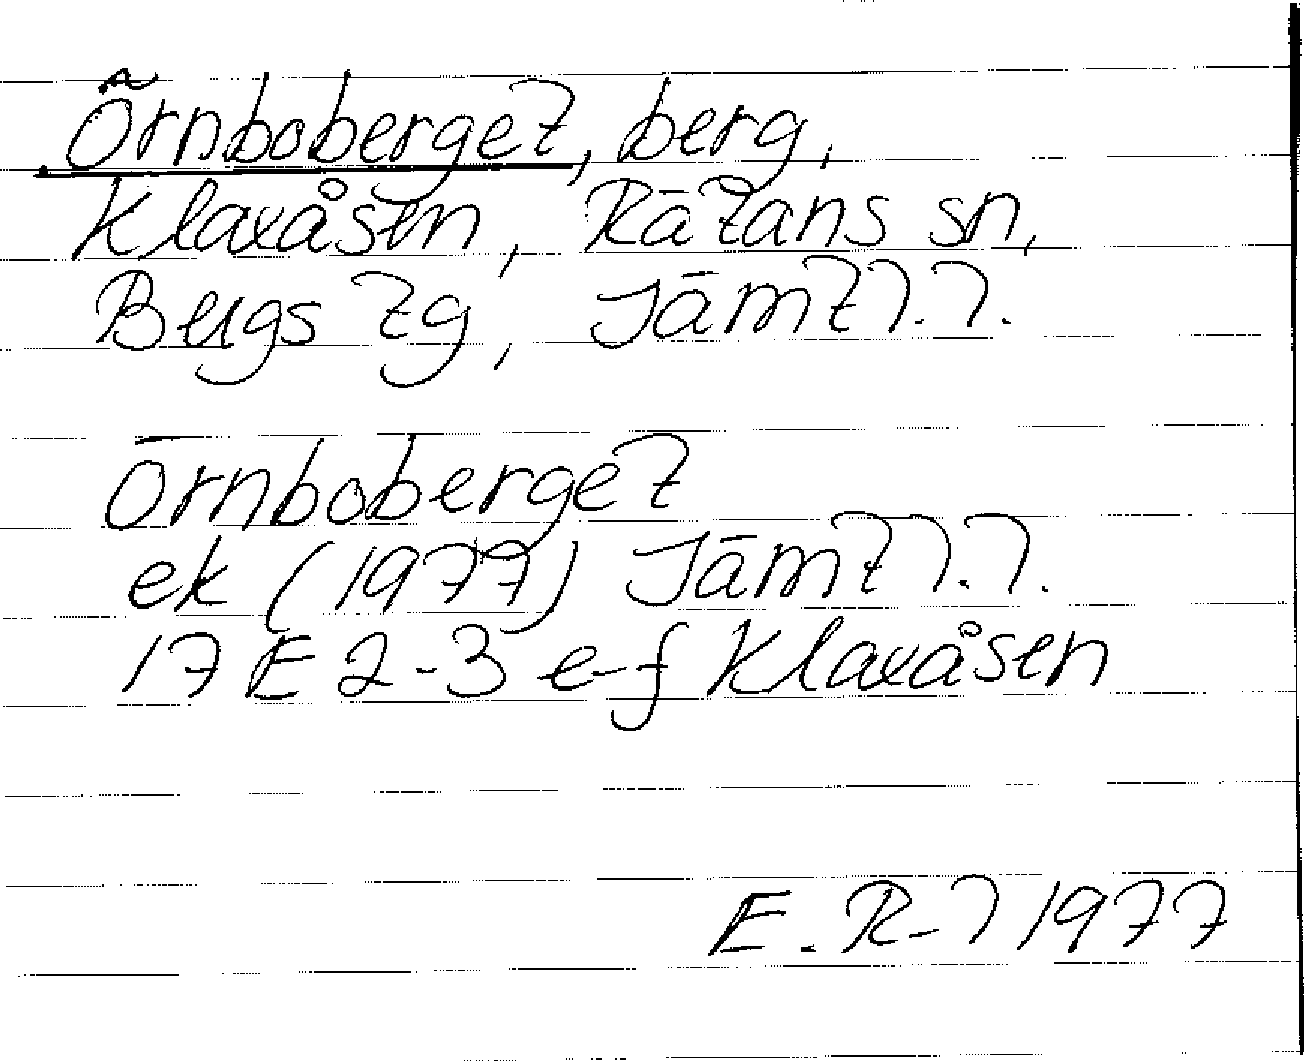 Örnboberget, berg,
Klaxåsen, Rätans sn,
Bergs tg, Jämtl.l.
Örnboberget
ek (1977) Jämtl.l.
17 E 2-3 e-f Klaxåsen
E. R-l 1977